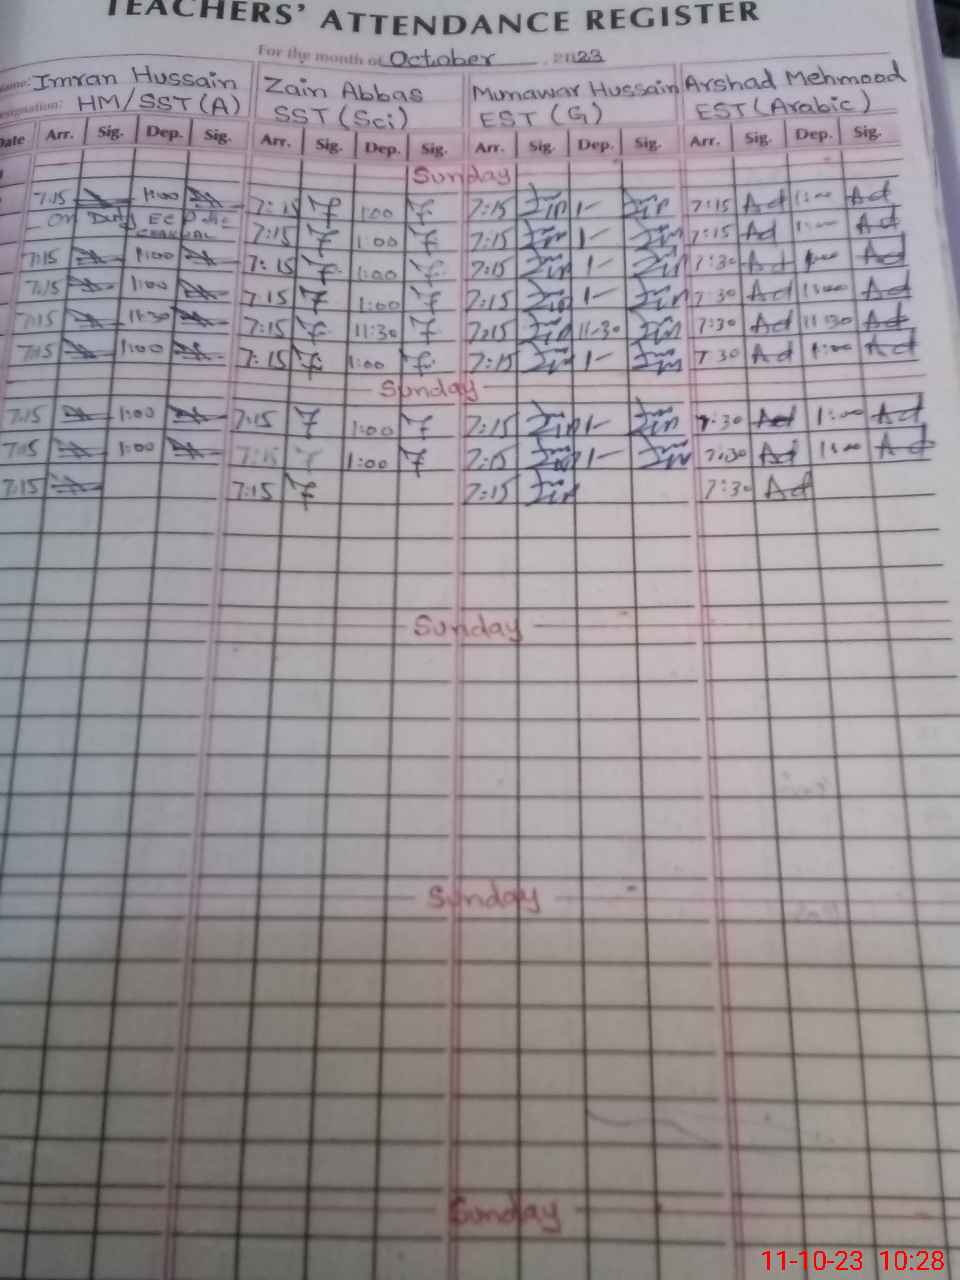 TEACHERS' ATTENDANCE REGISTER
For the month of October 2023
Name: Imran Hussain Zain Abbas Munawar Hussain Arshad Mehmood
Designation: HM/SST(A) SST(Sci) EST(G) EST(Arabic)
Date Arr. Sig. Dep. Sig. Arr. Sig. Dep. Sig. Arr. Sig. Dep. Sig. Arr. Sig. Dep. Sig.
Sunday
7.15 1:00 7:15 1:00 7:15 1- 7:15 Ad 1:00 Ad
On Duty 7:15 1:00 7:15 1- 7:15 Ad 1:00 Ad
7.15 1:00 7:15 1:00 7:15 1- 7:30 Ad 1:00 Ad
7.15 1:00 7.15 1:00 7:15 1- 7:30 Ad 1:00 Ad
7.15 11:30 7:15 11:30 7:15 11-30 7:30 Ad 11:30 Ad
7.15 1:00 7:15 1:00 7:15 1- 7:30 Ad 1:00 Ad
Sunday
7.15 1:00 7:15 1:00 7:15 1- 7:30 Ad 1:00 Ad
7.15 1:00 7:15 1:00 7:15 1- 7:30 Ad 1:00 Ad
7.15 7:15 7:15 7:30 Ad
Sunday
Sunday
Sunday
11-10-23 10:28